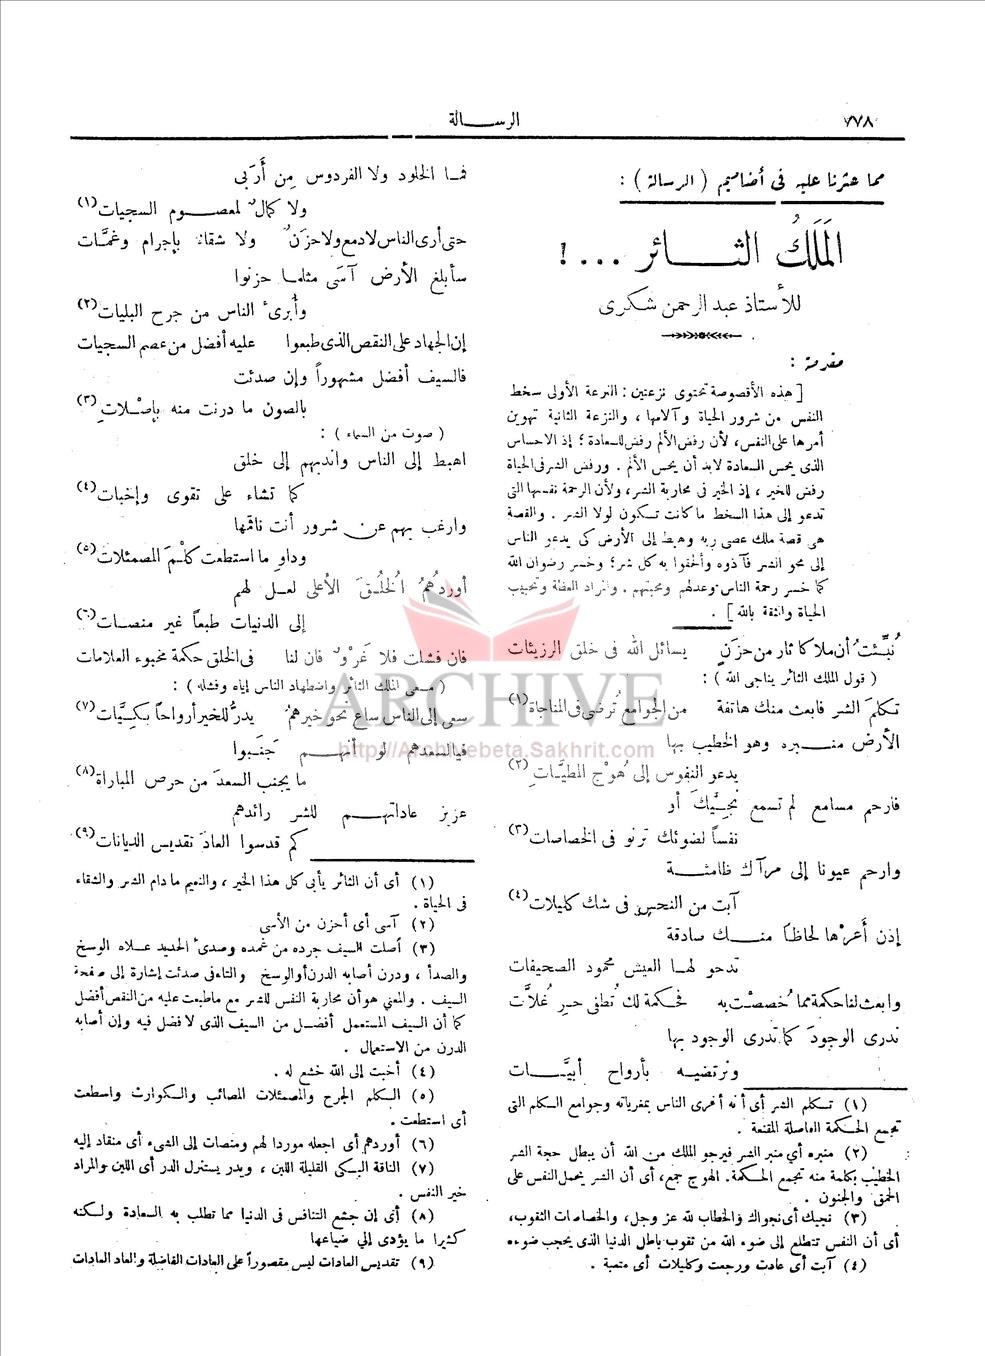 ٧٧٨
الرســـالة
مما عثرنا عليه فى أضاميم ( الرسالة ) :
المَلَكُ الثـــائر ... !
للأستاذ عبد الرحمن شكرى
مقدمة :
[ هذه الأقصوصة تحتوى نزعتين : النزعة الأولى سخط
النفس من شرور الحياة وآلامها ، والنزعة الثانية تهوين
أمرها على النفس ، لأن رفض الألم رفض للسعادة ؛ إذ الاحساس
الذى يحس السعادة لابد أن يحس الألم . ورفض الشر فى الحياة
رفض للخير ، إذ الخير فى محاربة الشر ، ولأن الرحمة نفسها التى
تدعو إلى هذا السخط ما كانت تكون لولا الشر . والقصة
هى قصة ملك عصى ربه وهبط إلى الأرض كى يدعو الناس
إلى محو الشر فآذوه وألحقوا به كل شر ؛ وخسر رضوان الله
كما خسر رحمة الناس وعدلهم ومحبتهم . والمراد العظة وتحبيب
الحياة والثقة بالله ] .
نُبِّئتُ أن ملاكا ثار من حزَنٍ يسائل الله فى خلق الرزيئات
( قول الملك الثائر يناجى الله ) :
تكلمَ الشر فابعث منك هاتفة من الجوامع تُرضَى فى المناجاة (١)
الأرض منـــبره وهو الخطيب بها
يدعو النفوس إلى هُوْج المطيَّاتِ (٢)
فارحم مسامع لم تسمع نجيَّك أو
نفساً لضوئك ترنو فى الخصاصات (٣)
وارحم عيونا إلى مرآك ظامئـــة
آبت من النحس فى شك كليلات (٤)
إذن أَعرْها لحاظاً منـــك صادقة
تدحو لهـا العيش محمود الصحيفات
وابعث لنا حكمة مما خُصصْت به فحكمة لك تُطفى حر غُلاَّت
ندرى الوجودَ كما تدرى الوجود بها
ونرتضيـه بأرواح أبيَّـــات
(١) تكلم الشر أى أنه أغرى الناس بمغرياته وجوامع الكلم التى
تجمع الحكمة الفاصلة المقنعة .
(٢) منبره أي منبر الشر فيرجو الملك من الله أن يبطل حجة الشر
الخطيب بكلمة منه تجمع الحكمة. الهوج جمع، أى أن الشر يحمل النفس على
الحمق والجنون .
(٣) نجيك أى نجواك والخطاب لله عز وجل، والخصاصات الثقوب،
أى أن النفس تتطلع إلى ضوء الله من ثقوب باطل الدنيا الذى يحجب ضوءه
(٤) آبت أى عادت ورجعت وكليلات أى متعبة .
فمـا الخلود ولا الفردوس مِن أَرَبى
ولا كمالٌ لمعصـــوم السجيات (١)
حتى أرى الناس لا دمع ولا حزَنٌ ولا شقاءَ بإجرام وغمَّات
سأبلغ الأرض آسَى مثلمـا حزنوا
وأبرىءُ الناس من جرح البليات (٢)
إن الجهاد على النقص الذى طبعوا عليه أفضل من عصم السجيات
فالسيف أفضل مشهوراً وإن صدئت
بالصون ما درنت منه بإصْلاتِ (٣)
( صوت من السماء ) :
اهبط إلى الناس واندبهم إلى خلق
كما تشاء على تقوى وإخبات (٤)
وارغب بهم عن شرور أنت ناقمها
وداوِ ما استطعت كلْمَ المصمئلات (٥)
أوردْهمُ الُخلـقَ الأعلى لعـل لهم
إلى الدنيات طبعاً غير منصـات (٦)
فان فشلت فلا غَرْوٌ فان لنا فى الخلق حكمة مخبوء العلامات
( سعى الملك الثائر واضطهاد الناس إياه وفشله ) :
سعى إلى الناس ساع نحو خيرهمُ يدرُّ للخير أرواحاً بكِيَّات (٧)
فيالسعدهم لو أنهـــم جَنَبوا
ما يجنب السعدَ من حرص المباراة (٨)
عزيز عاداتهـــم للشر رائدهم
كم قدسوا العادَ تقديس الديانات (٩)
(١) أى أن الثائر يأبى كل هذا الخير ، والنعيم ما دام الشر والشقاء
فى الحياة .
(٢) آسى أى أحزن من الأسى
(٣) أصلت السيف جرده من غمده وصدىء الحديد عـلاه الوسخ
والصدأ ، ودرن أصابه الدرن أو الوسخ والتاء فى صدئت إشارة إلى صفحة
السيف . والمعنى هو أن محاربة النفس للشر مع ما طبعت عليه من النقص أفضل
كما أن السيف المستعمل أفضل من السيف الذى لا فضل فيه وإن أصابه
الدرن من الاستعمال .
(٤) أخبت إلى الله خشع له .
(٥) الكلم الجرح والمصمئلات المصائب والكوارث واسطعت
أى استطعت .
(٦) أوردهم أى اجعله موردا لهم ومنصات إلى الشىء أى منقاد إليه
(٧) الناقة البكى القليلة اللبن ، ويدر يستنزل الدر أى اللبن والمراد
خير النفس .
(٨) أى إن جشع التنافس فى الدنيا مما تطلب به السعادة ولكنه
كثيرا ما يؤدى إلي ضياعها
(٩) تقديس العادات ليس مقصوراً على العادات الفاضلة والعاد العادات
ARCHIVE
http://Archivebeta.Sakhrit.com